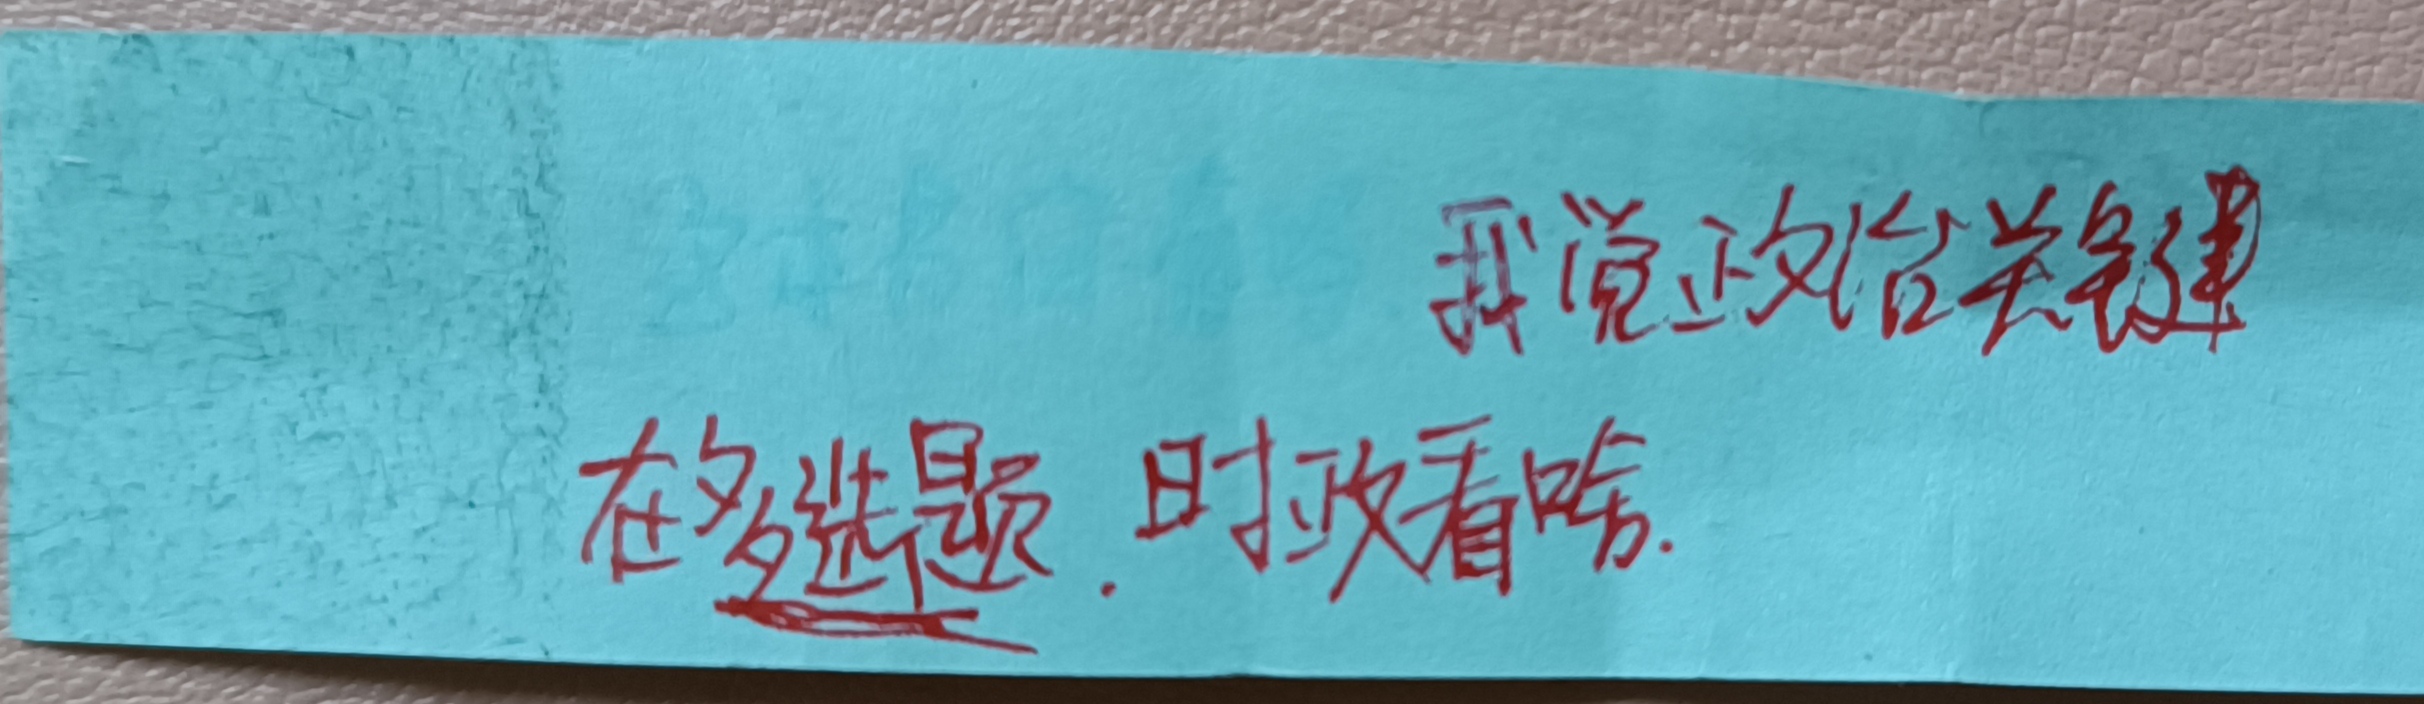 我觉政治关键
在多选题.时政看啥.